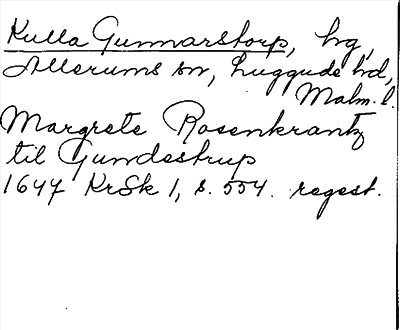 Kulla Gunnarstorp, hg,
Allerums sn, Luggude hd,
Malm. l.
Margrete Rosenkrantz
til Gundestrup
1647 KrSk 1, s. 554. regest.